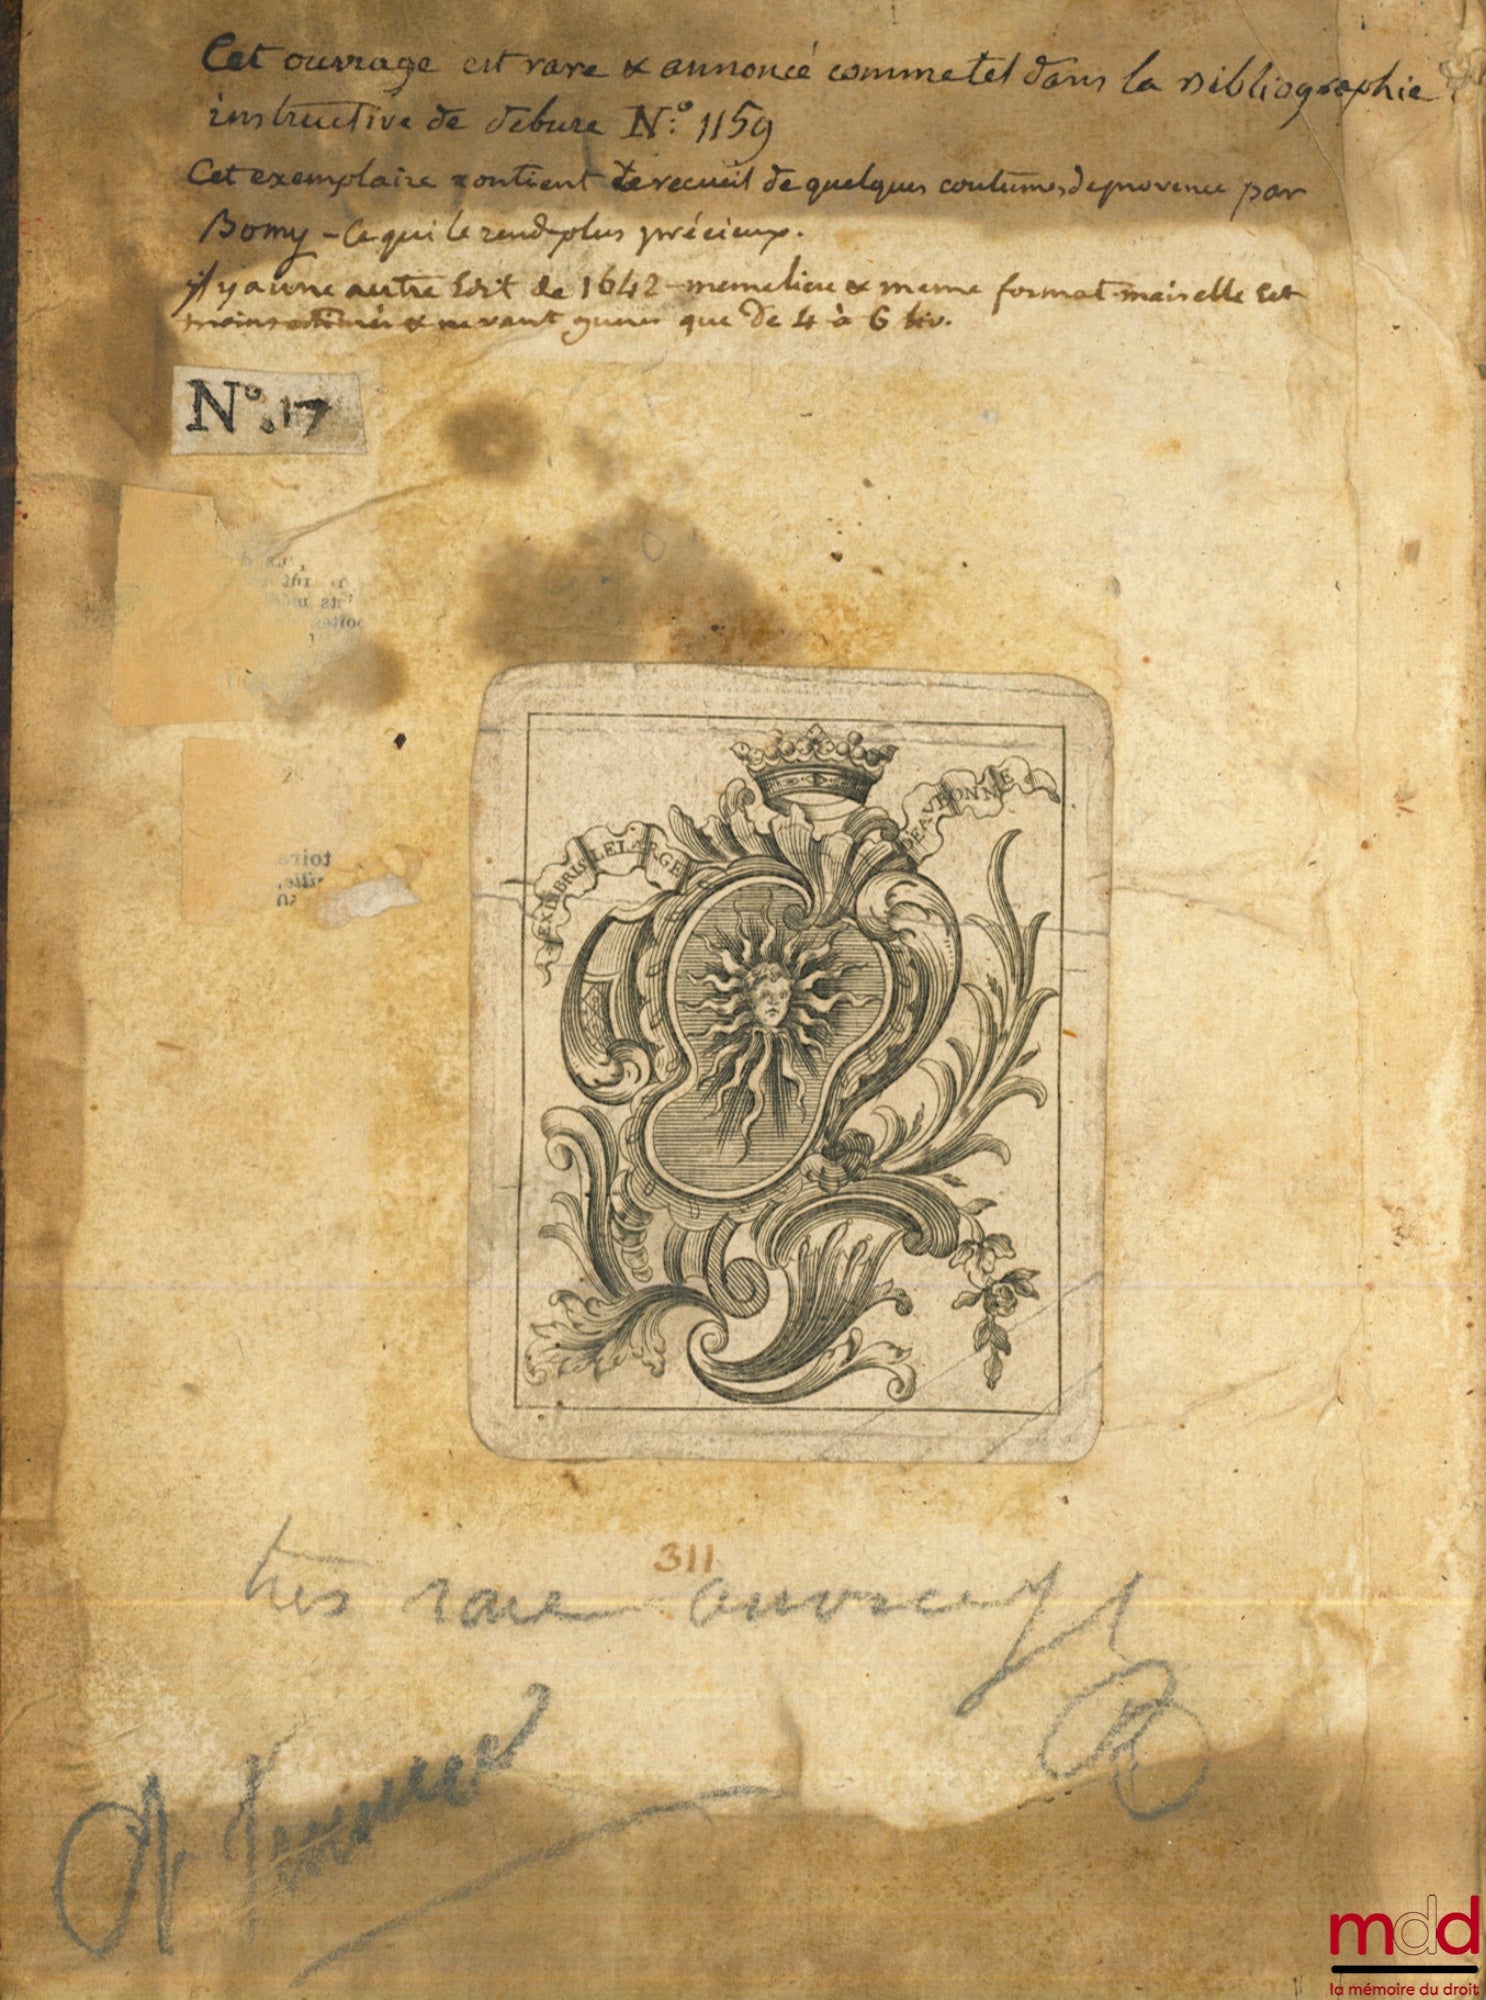 Cet ouvrage est rare & annoncé comme tel dans la Bibliographie
instructive de debure N.º 1159
Cet exemplaire contient le recueil de quelques coutumes de provence par
Bomy - Ce qui le rend plus précieux.
il y a une autre Edit de 1642 meme lieu & meme format mais elle Est
moins estimée & ne vaut gueres que de 4 à 6 liv.
Nº. 17
EX LIBRIS LELARGE DEAVBONNE
311
très rare
mdd
la mémoire du droit